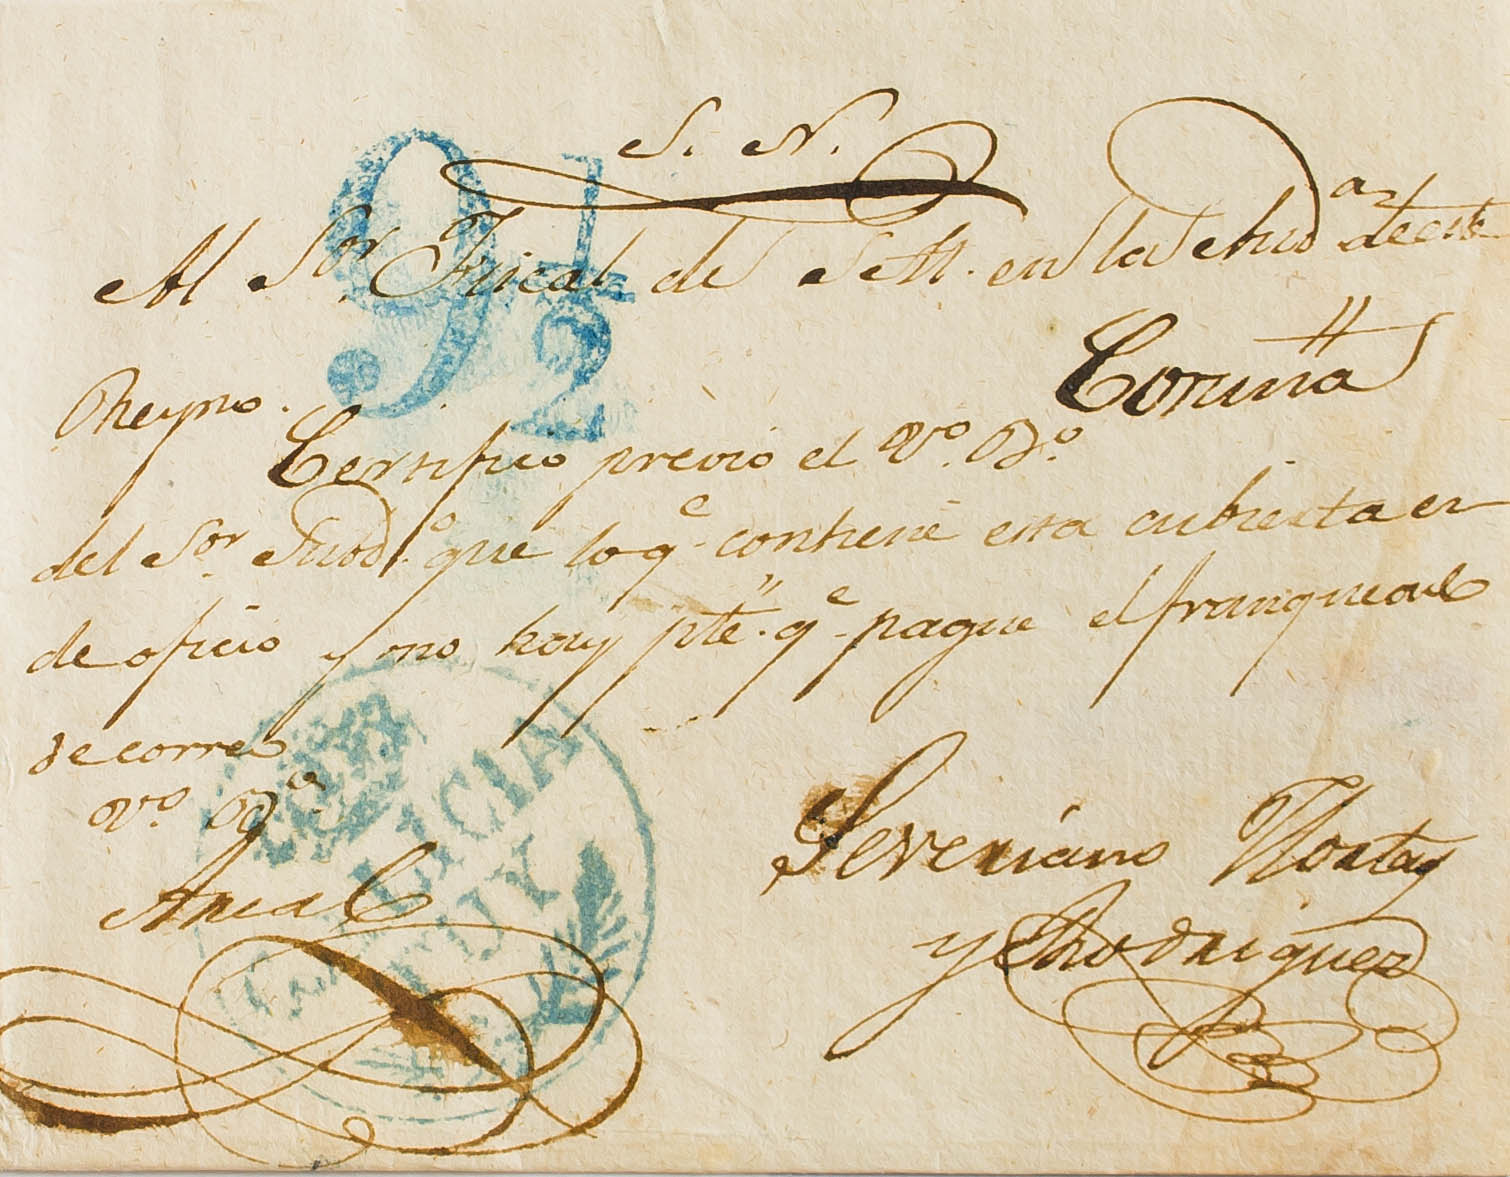 S. N.
9 1/2
Al Sor. Fiscal de S M. en la Aud.a de este
Reyno.
Coruña
Certifico previo el Vo. Bo.
del Sor. Subd.o que lo qe. contiene esta cubierta es
de oficio y no hay pte. qe. pague el franqueo
de correo
Vo. Bo.
Severiano Montas
y Rodriguez
LICIA
TUY